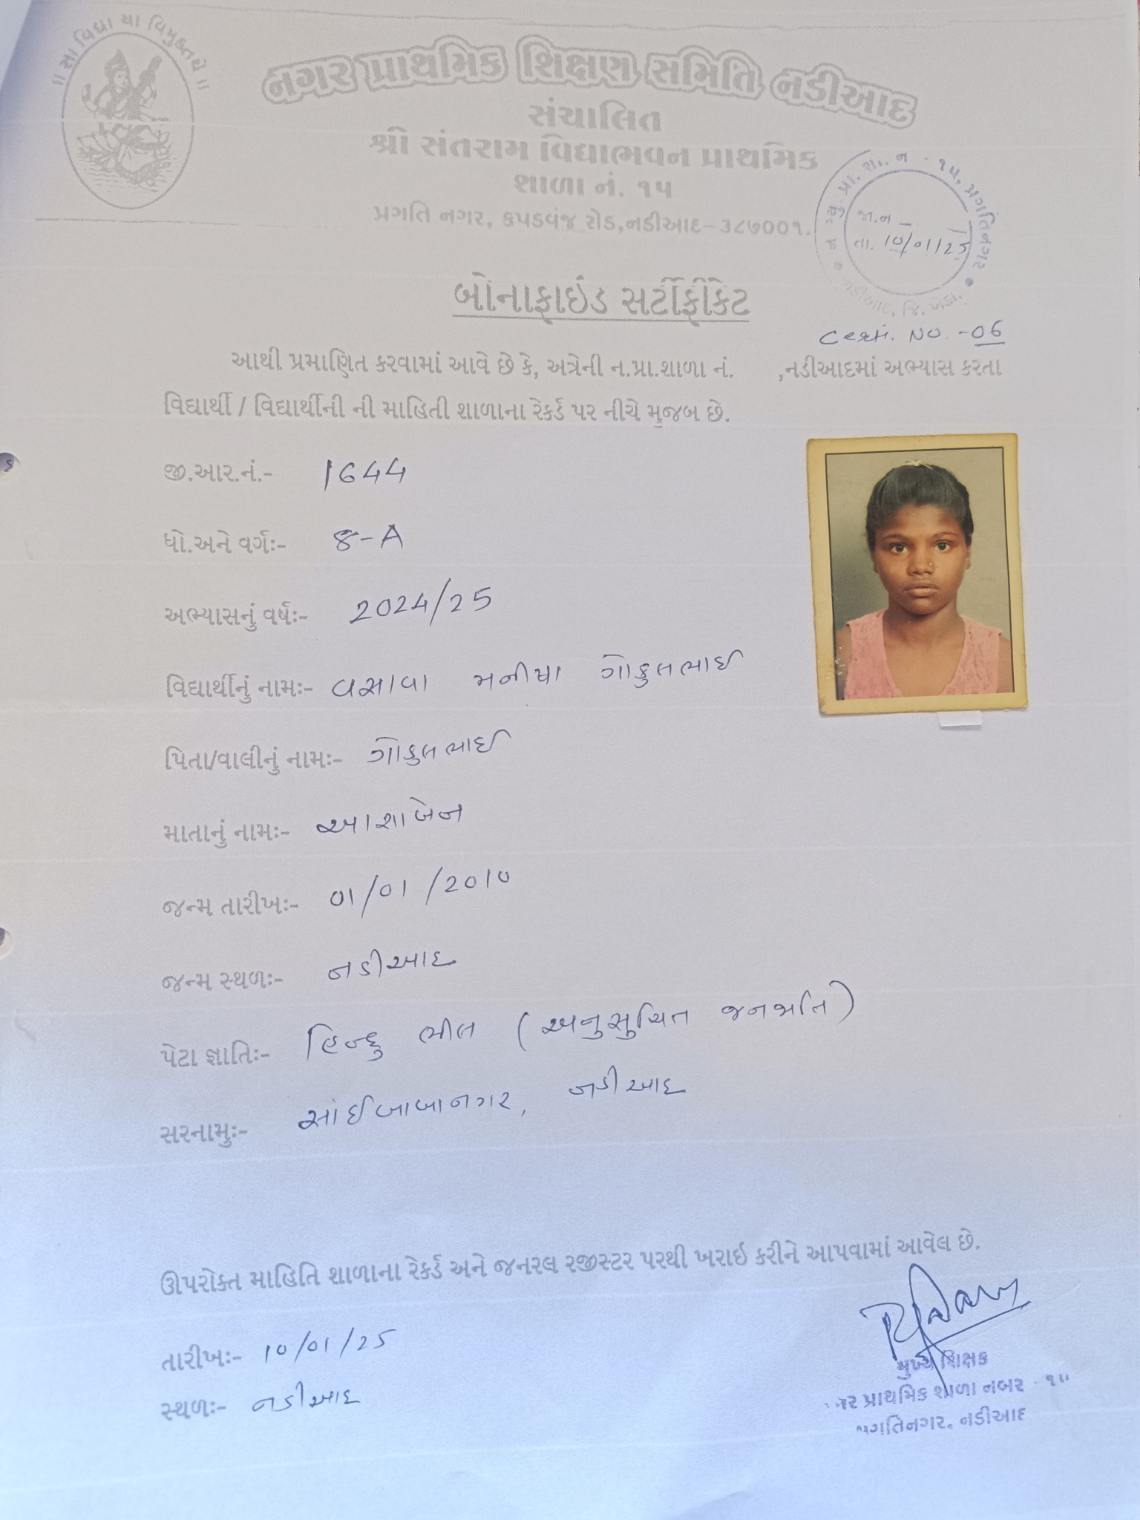 ॥ સા વિદ્યા યા વિમુક્તયે ॥
નગર પ્રાથમિક શિક્ષણ સમિતિ નડીઆદ
સંચાલિત
શ્રી સંતરામ વિદ્યાભવન પ્રાથમિક
શાળા નં. ૧૫
પ્રગતિ નગર, કપડવંજ રોડ,નડીઆદ-૩૮૭૦૦૧.
પ્રા. શા. ન - ૧૫, પ્રગતિનગર
જા.ન
તા. 10/01/25
નડીઆદ, જિ. ખેડા.
બોનાફાઇડ સર્ટીફીકેટ
Certi. No. -06
આથી પ્રમાણિત કરવામાં આવે છે કે, અત્રેની ન.પ્રા.શાળા નં. ,નડીઆદમાં અભ્યાસ કરતા
વિદ્યાર્થી / વિદ્યાર્થીની ની માહિતી શાળાના રેકર્ડ પર નીચે મુજબ છે.
જી.આર.નં.- 1644
ધો.અને વર્ગઃ- 8-A
અભ્યાસનું વર્ષઃ- 2024/25
વિદ્યાર્થીનું નામઃ- વસાવા મનીષા ગોકુલભાઈ
પિતા/વાલીનું નામઃ- ગોકુલભાઈ
માતાનું નામઃ- આશાબેન
જન્મ તારીખઃ- 01/01/2010
જન્મ સ્થળઃ- નડીઆદ
પેટા જ્ઞાતિઃ- હિન્દુ ભીલ (અનુસુચિત જનજાતિ)
સરનામુઃ- સાંઈબાબાનગર, નડીઆદ
ઊપરોક્ત માહિતિ શાળાના રેકર્ડ અને જનરલ રજીસ્ટર પરથી ખરાઇ કરીને આપવામાં આવેલ છે.
તારીખઃ- 10/01/25
સ્થળઃ- નડીઆદ
મુખ્ય શિક્ષક
પ્રાથમિક શાળા નંબર - ૧૫
પ્રગતિનગર, નડીઆદ